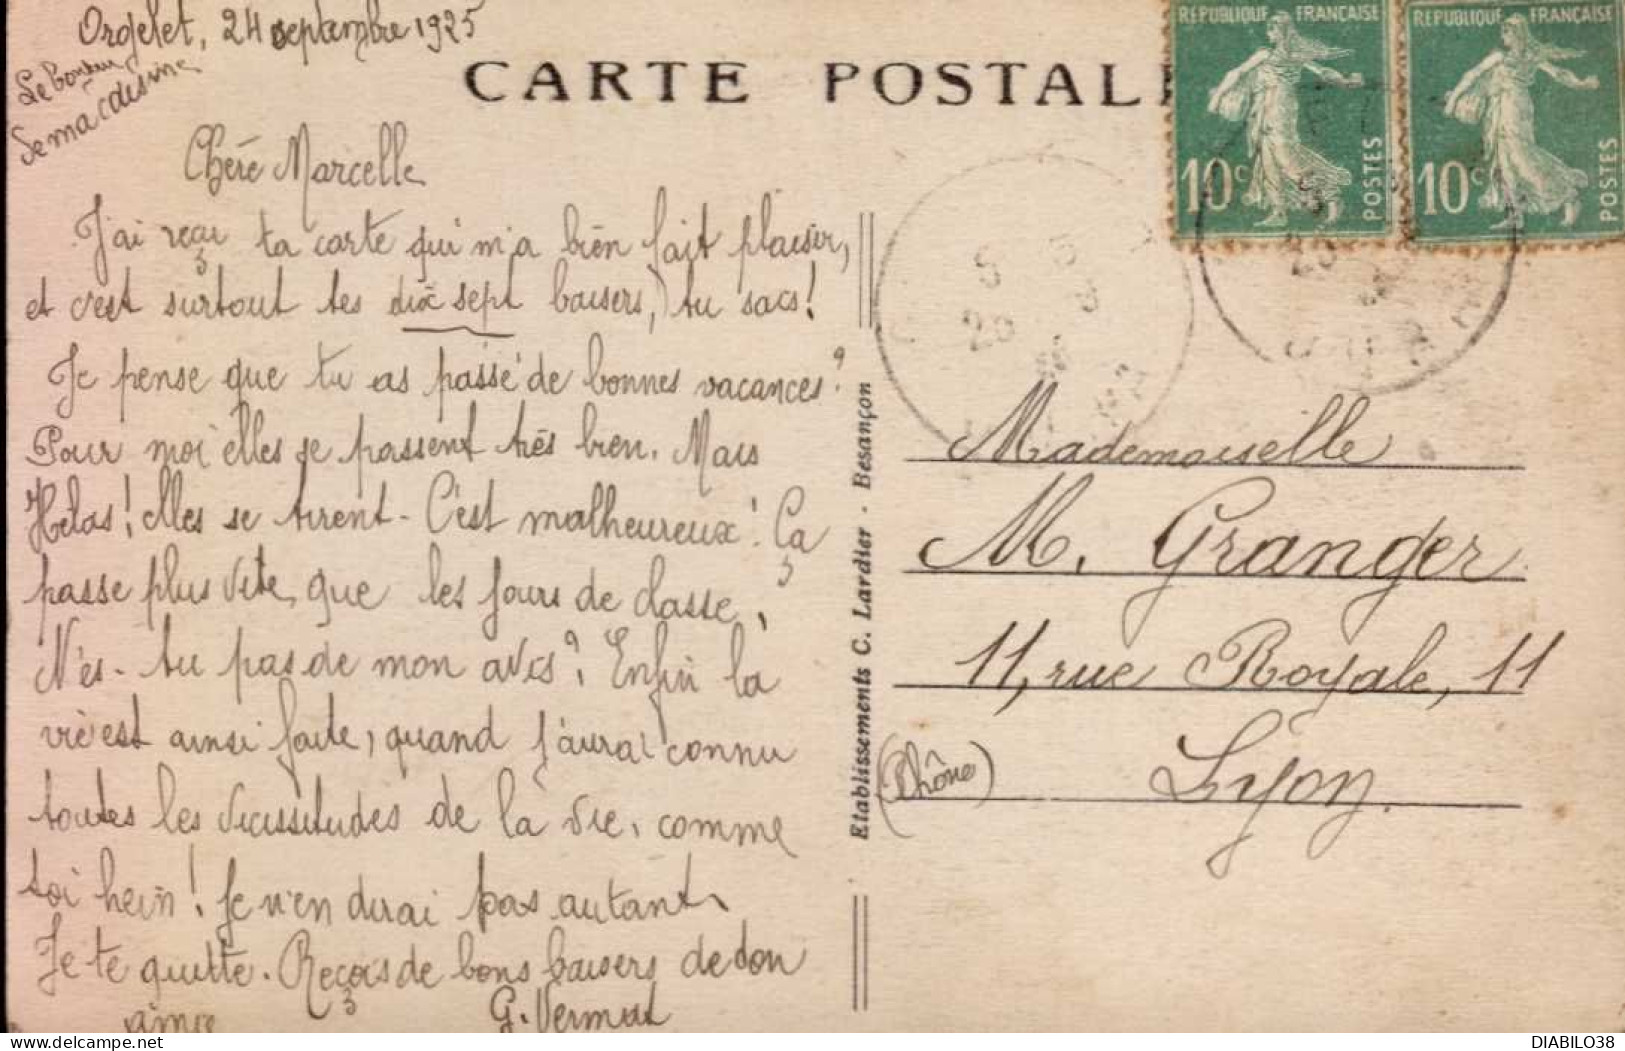 Orgelet, 24 septembre 1925
Le bonjour
de ma cousine
CARTE POSTALE
REPUBLIQUE FRANÇAISE
10c POSTES
REPUBLIQUE FRANÇAISE
10c POSTES
Chère Marcelle
J'ai reçu ta carte qui m'a bien fait plaisir,
et c'est surtout tes dix sept baisers, tu sacs!
Je pense que tu as passé de bonnes vacances?
Pour moi elles se passent très bien. Mais
Hélas! elles se tirent - C'est malheureux! Ça
passe plus vite que les jours de classe,
N'es-tu pas de mon avis? Enfin la
vie est ainsi faite, quand j'aurai connu
toutes les vicissitudes de la vie, comme
toi hein! Je n'en dirai pas autant,
Je te quitte. Reçois de bons baisers de ton
amie
G. Vermot
Etablissements C. Lardier - Besançon
Mademoiselle
M. Granger
11, rue Royale, 11
Lyon.
(Rhône)
DIABILO38